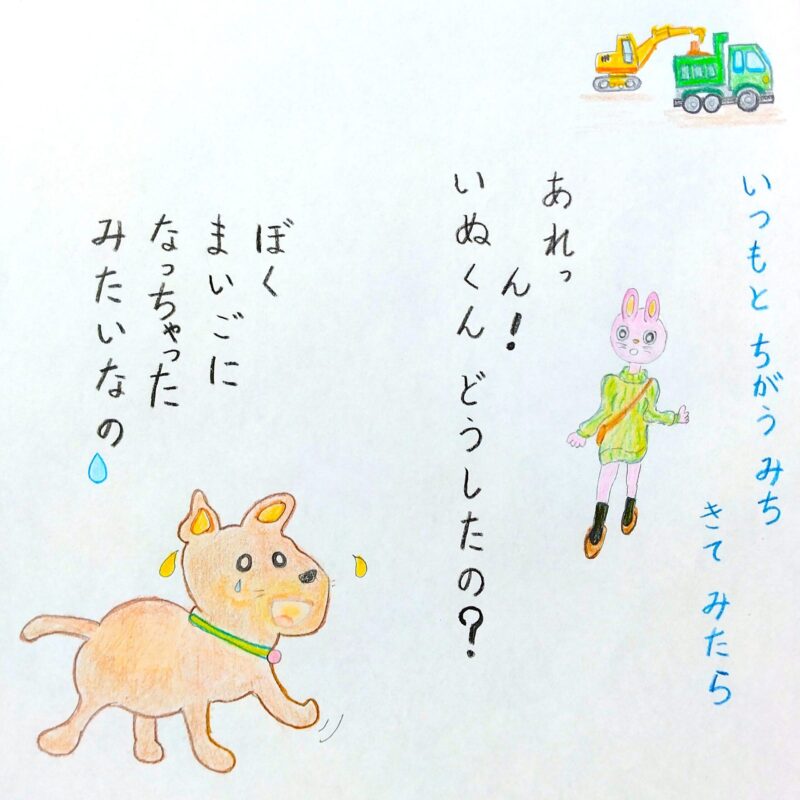 いつもと ちがう みち
きて みたら
あれっ
ん!
いぬくん どうしたの?
ぼく
まいごに
なっちゃった
みたいなの